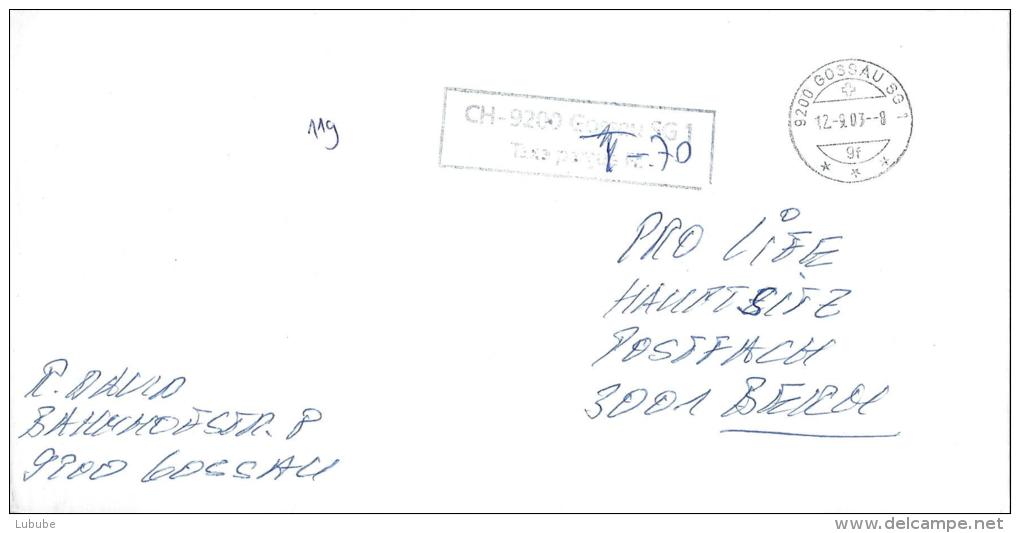 9200 GOSSAU SG 1
12.-9.03--8
9f
119
CH-9200 Gossau SG 1
T -70
PRO LIFE
HAUPTSITZ
POSTFACH
3001 BERN
R. DAVID
BAHNHOFSTR. 8
9200 GOSSAU
Lubube
www.delcampe.net